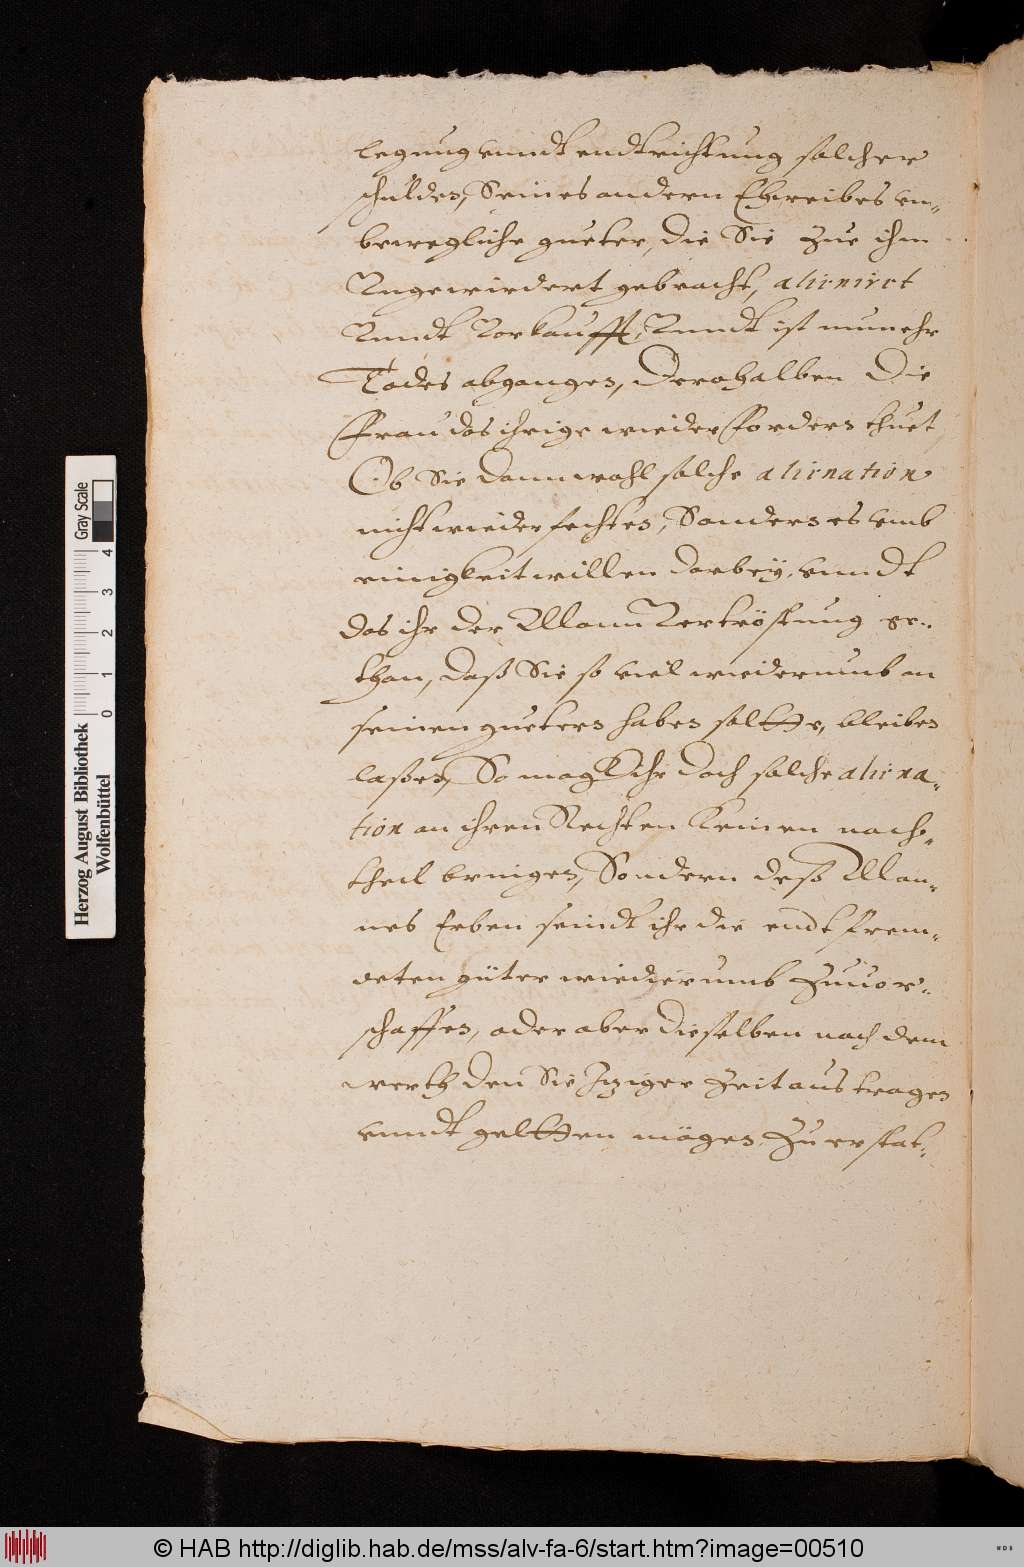 legung vundt endtrichtung solcher
schulden, Seines andern Eheweibes vn-
bewegliche gueter, die Sie Zue ihm
Angewiedert gebracht, alienirt
Vundt Vorkaufft, Vundt ist nunmehr
Todes abgangen, Derohalben Die
Ffrau das ihrige wieder ffordern thuet
Ob Sie dann wohl solche alienation
nicht wiederfechten, Sondern es vmb
einigkeit willen darbey, vundt
das ihr der Mann Vertröstung ge-
than, daß Sie so viel wiederumb an
seinen guetern haben soltte, bleiben
laßen, So mag Ihr doch solche aliena-
tion an ihren Rechten Keinen nach-
theil bringen, Sondern deß Man-
nes Erben seindt ihr die endtfrem-
deten güter wiederumb Zuuor-
schaffen, oder aber dieselben nach dem
werth den Sie Itziger Zeit austragen
vundt geltten mögen Zu erstat-
Herzog August Bibliothek
Wolfenbüttel
0 1 2 3 4
Gray Scale
© HAB http://diglib.hab.de/mss/alv-fa-6/start.htm?image=00510